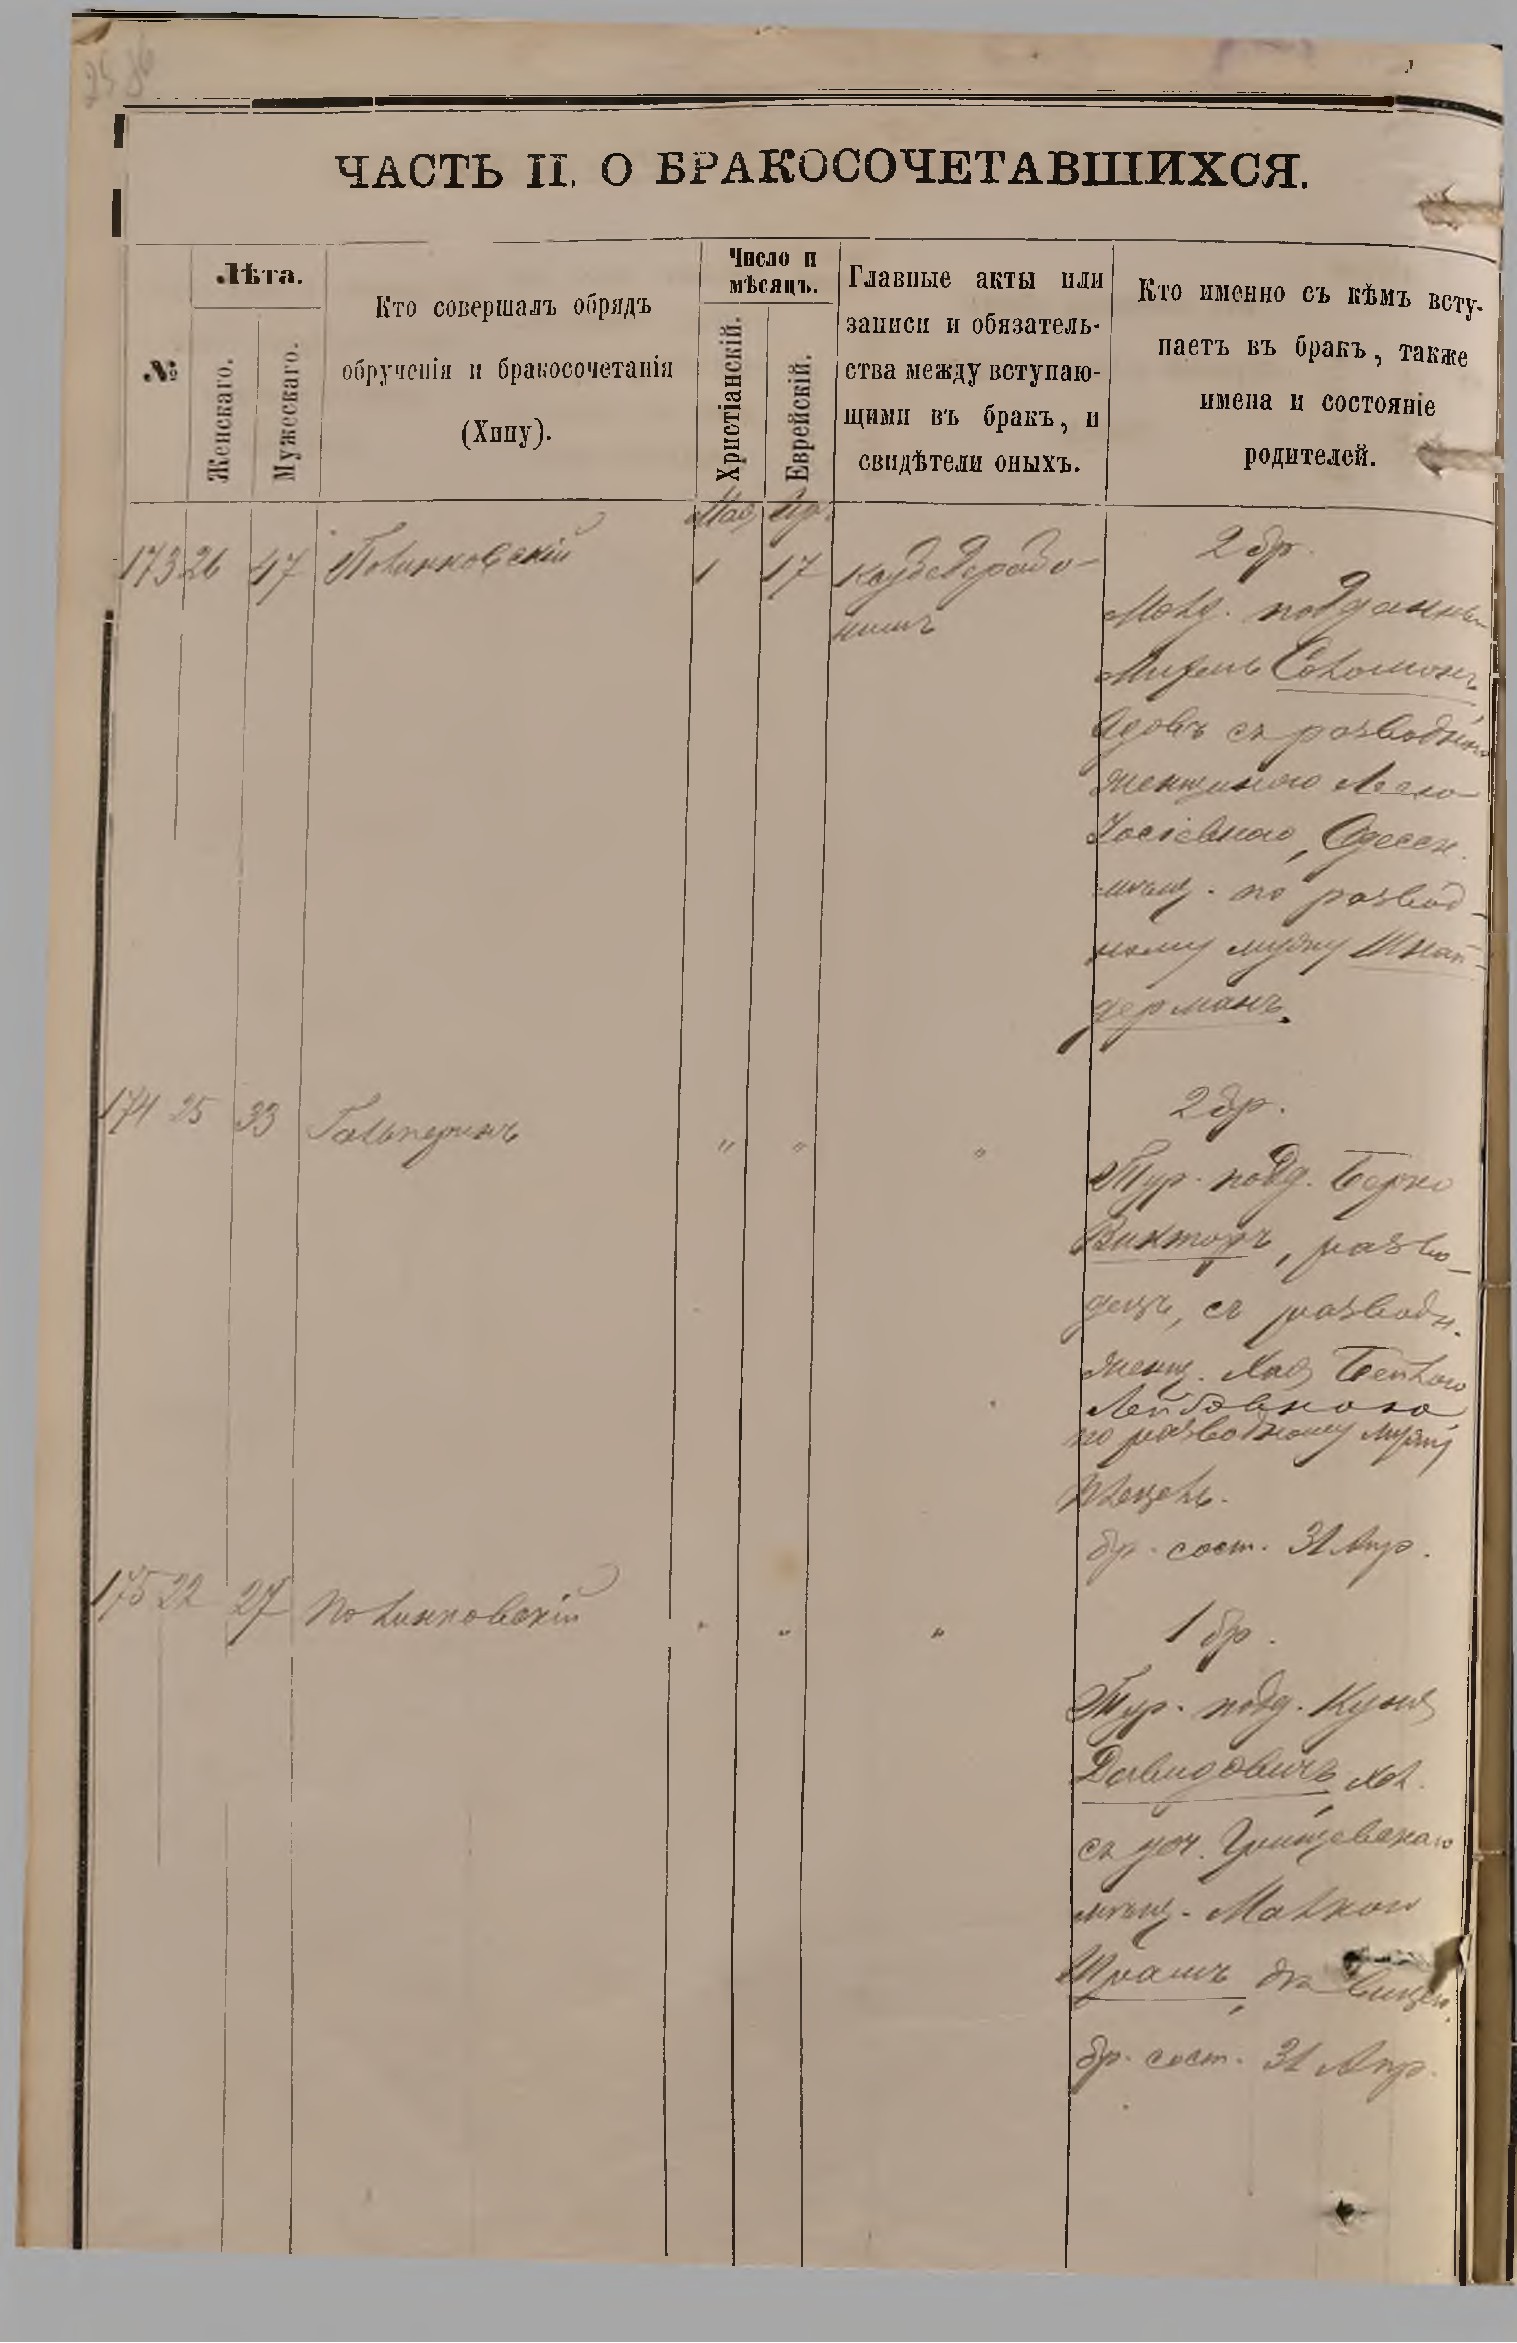 ЧАСТЬ II. О БРАКОСОЧЕТАВШИХСЯ.
№
Лѣта.
Женскаго.
Мужескаго.
Кто совершалъ обрядъ
обрученія и бракосочетанія
(Хипу).
Число и
мѣсяцъ.
Христіанскій.
Еврейскій.
Главные акты или
записи и обязатель-
ства между вступаю-
щими въ бракъ, и
свидѣтели оныхъ.
Кто именно съ кѣмъ всту-
паетъ въ бракъ, также
имена и состояніе
родителей.
173 26 47 Полинковскій
Мая
1 17
2 бр.
Молд. подданный
Соломонъ,
вдовъ съ разводною
женщиною Леею
Іосіевною, Одесск.
мѣщ. по развод-
ному мужу Шнай-
дерманъ.
174 25 33 Гальперинъ " " "
2 бр.
Тур. подд. Берко
Викторъ, разво-
децъ, съ разводн.
женщ. Хая Бейлою
Лейбовною
по разводному мужу
бр. сост. 31 Апр.
175 22 27 Полинковскій " " "
1 бр.
Тур. подд. Куна
Давидовичъ, хол.
съ доч. Грицевскаго
мѣщ. Малкою
Шрамъ, дѣвицею,
бр. сост. 31 Апр.